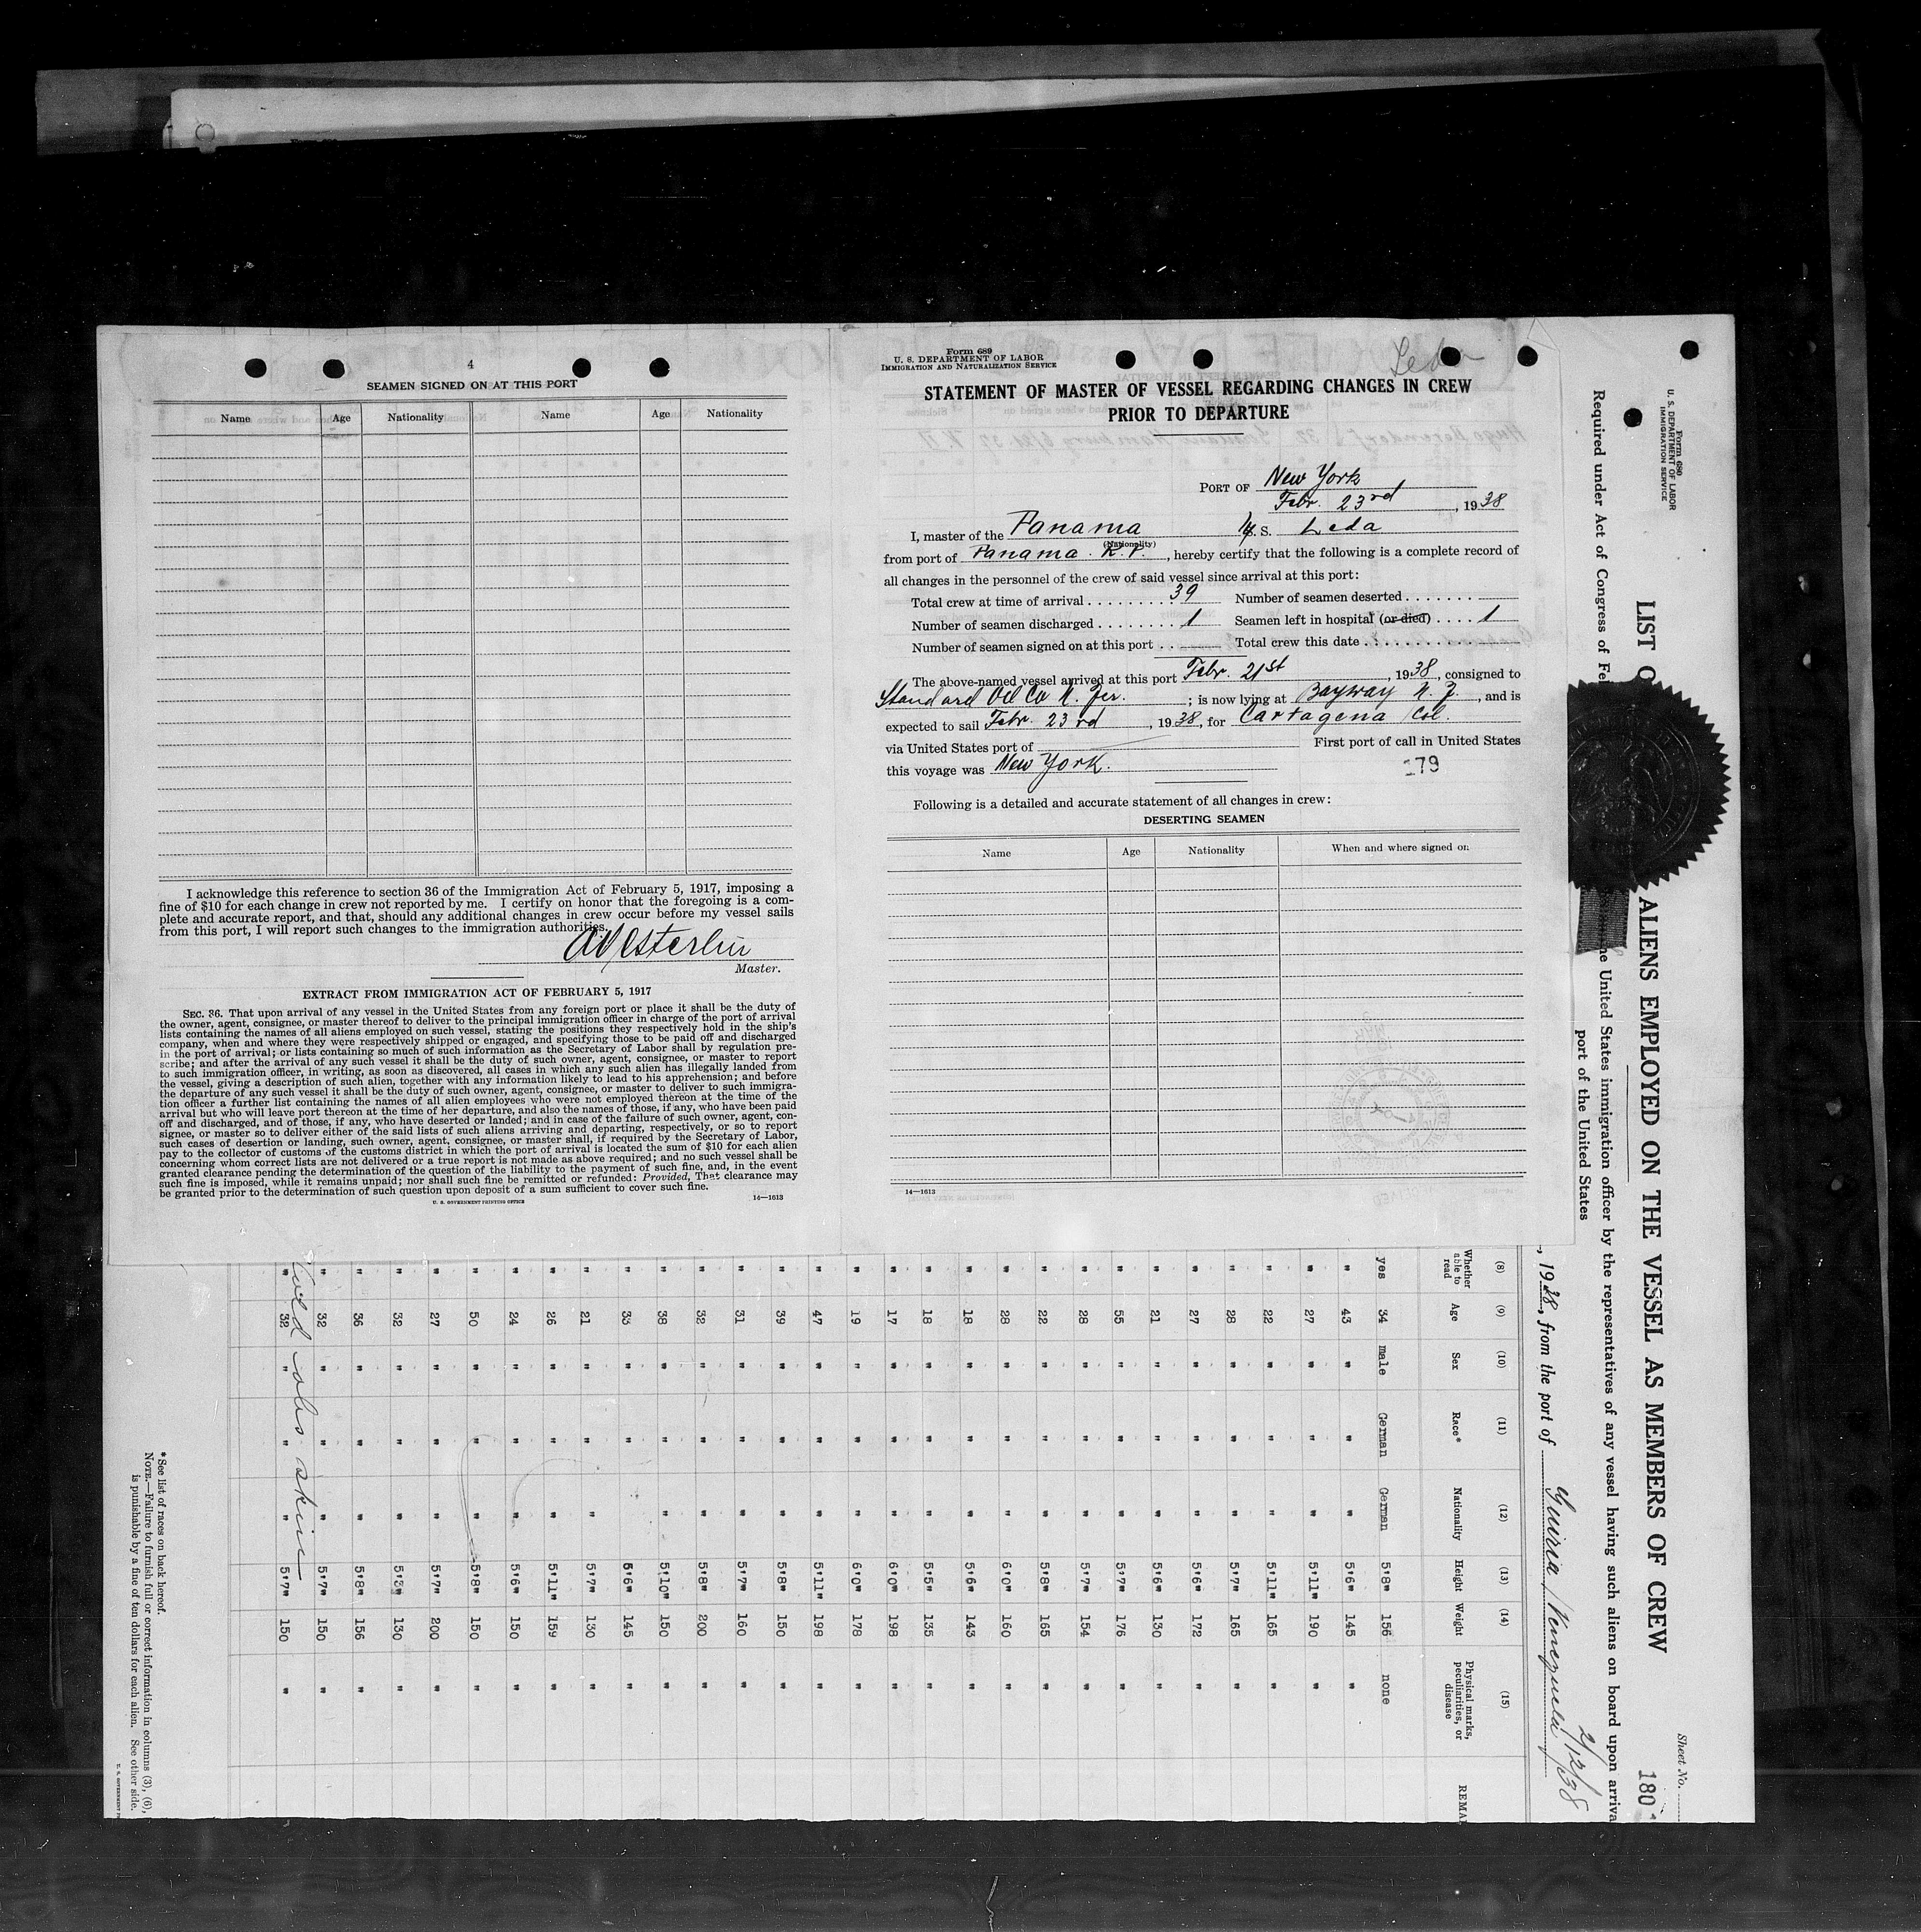 4
SEAMEN SIGNED ON AT THIS PORT
Name Age Nationality Name Age Nationality
I acknowledge this reference to section 36 of the Immigration Act of February 5, 1917, imposing a
fine of $10 for each change in crew not reported by me. I certify on honor that the foregoing is a com-
plete and accurate report, and that, should any additional changes in crew occur before my vessel sails
from this port, I will report such changes to the immigration authorities.
Master.
EXTRACT FROM IMMIGRATION ACT OF FEBRUARY 5, 1917
SEC. 36. That upon arrival of any vessel in the United States from any foreign port or place it shall be the duty of
the owner, agent, consignee, or master thereof to deliver to the principal immigration officer in charge of the port of arrival
lists containing the names of all aliens employed on such vessel, stating the positions they respectively hold in the ship's
company, when and where they were respectively shipped or engaged, and specifying those to be paid off and discharged
in the port of arrival; or lists containing so much of such information as the Secretary of Labor shall by regulation pre-
scribe; and after the arrival of any such vessel it shall be the duty of such owner, agent, consignee, or master to report
to such immigration officer, in writing, as soon as discovered, all cases in which any such alien has illegally landed from
the vessel, giving a description of such alien, together with any information likely to lead to his apprehension; and before
the departure of any such vessel it shall be the duty of such owner, agent, consignee, or master to deliver to such immigra-
tion officer a further list containing the names of all alien employees who were not employed thereon at the time of the
arrival but who will leave port thereon at the time of her departure, and also the names of those, if any, who have been paid
off and discharged, and of those, if any, who have deserted or landed; and in case of the failure of such owner, agent, con-
signee, or master so to deliver either of the said lists of such aliens arriving and departing, respectively, or so to report
such cases of desertion or landing, such owner, agent, consignee, or master shall, if required by the Secretary of Labor,
pay to the collector of customs of the customs district in which the port of arrival is located the sum of $10 for each alien
concerning whom correct lists are not delivered or a true report is not made as above required; and no such vessel shall be
granted clearance pending the determination of the question of the liability to the payment of such fine, and, in the event
such fine is imposed, while it remains unpaid; nor shall such fine be remitted or refunded: Provided, That clearance may
be granted prior to the determination of such question upon deposit of a sum sufficient to cover such fine.
U. S. GOVERNMENT PRINTING OFFICE 14—1613
Form 689
U. S. DEPARTMENT OF LABOR
IMMIGRATION AND NATURALIZATION SERVICE
Leda
STATEMENT OF MASTER OF VESSEL REGARDING CHANGES IN CREW
PRIOR TO DEPARTURE
PORT OF New York
Febr. 23rd, 1938
I, master of the Panama S. Leda
(Nationality)
from port of Panama R.P., hereby certify that the following is a complete record of
all changes in the personnel of the crew of said vessel since arrival at this port:
Total crew at time of arrival 39 Number of seamen deserted
Number of seamen discharged 1 Seamen left in hospital (or died) 1
Number of seamen signed on at this port Total crew this date
The above-named vessel arrived at this port Febr. 21st, 1938, consigned to
Standard Oil Co N. Jer.; is now lying at Bayway N. J., and is
expected to sail Febr. 23rd, 1938, for Cartagena Col.
via United States port of First port of call in United States
this voyage was New York.
179
Following is a detailed and accurate statement of all changes in crew:
DESERTING SEAMEN
Name Age Nationality When and where signed on
14—1613
Form 680
U. S. DEPARTMENT OF LABOR
IMMIGRATION SERVICE
Sheet No.
180
LIST O ALIENS EMPLOYED ON THE VESSEL AS MEMBERS OF CREW
Required under Act of Congress of Fe he United States immigration officer by the representatives of any vessel having such aliens on board upon arriva
port of the United States
, 1938, from the port of Guiria / Venezuela / 2/12/38
(8) (9) (10) (11) (12) (13) (14) (15)
Whether able to read Age Sex Race* Nationality Height Weight Physical marks, peculiarities, or disease REMA
yes 34 male German German 5'8" 156 none
" 43 " " " 5'6" 145 "
" 27 " " " 5'11" 190 "
" 22 " " " 5'11" 165 "
" 28 " " " 5'7" 165 "
" 27 " " " 5'6" 172 "
" 21 " " " 5'6" 130 "
" 55 " " " 5'7" 176 "
" 28 " " " 5'7" 154 "
" 22 " " " 5'8" 165 "
" 28 " " " 6'0" 160 "
" 18 " " " 5'6" 143 "
" 18 " " " 5'5" 135 "
" 17 " " " 6'0" 198 "
" 19 " " " 6'0" 178 "
" 47 " " " 5'11" 198 "
" 39 " " " 5'8" 150 "
" 31 " " " 5'7" 160 "
" 32 " " " 5'8" 200 "
" 38 " " " 5'10" 150 "
" 33 " " 5'6" 145 "
" 21 " " " 5'7" 130 "
" 26 " " " 5'11" 159 "
" 24 " " " 5'6" 150 "
" 50 " " " 5'8" 150 "
" 27 " " " 5'7" 200 "
" 32 " " " 5'3" 130 "
" 36 " " " 5'8" 156 "
" 32 " " " 5'7" 150 "
" 32 " " " 5'7" 150 "
*See list of races on back hereof.
NOTE.—Failure to furnish full or correct information in columns (3), (6),
is punishable by a fine of ten dollars for each alien. See other side.